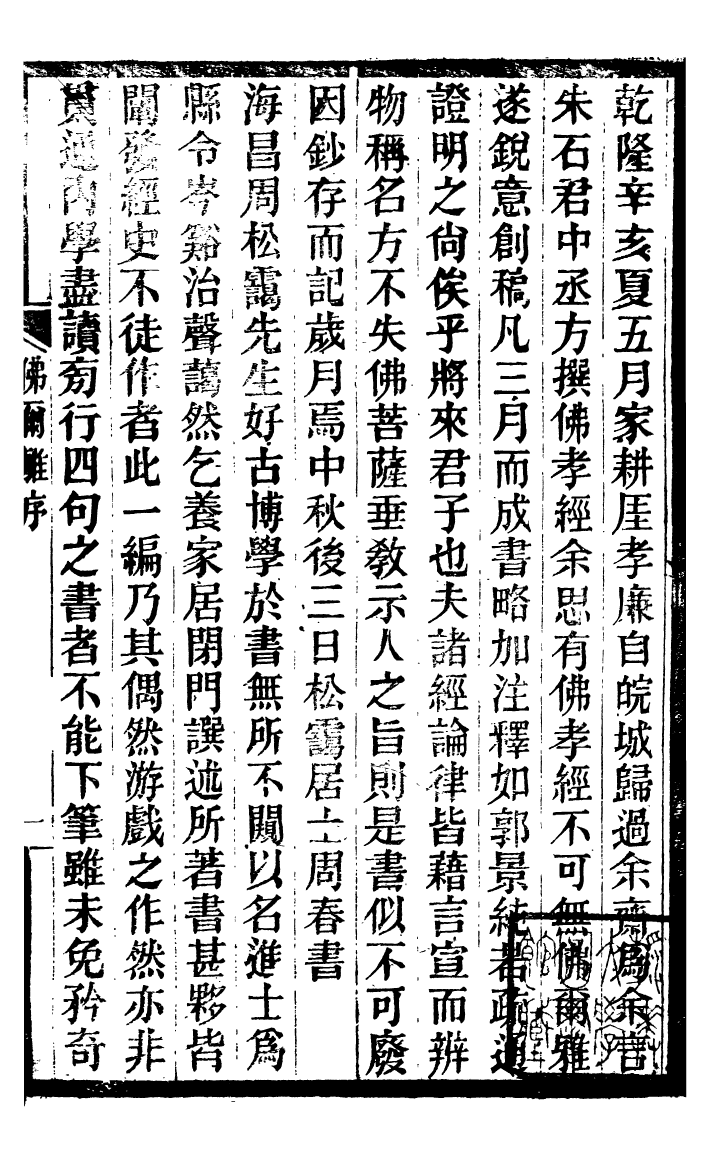 乾隆辛亥夏五月家耕厓孝廉自皖城歸過余齋爲余言
朱石君中丞方撰佛孝經余思有佛孝經不可無佛爾雅
遂銳意創稿凡三月而成書略加注釋如郭景純若疏通
證明之尙俟乎將來君子也夫諸經論律皆藉言宣而辨
物稱名方不失佛菩薩垂敎示人之旨則是書似不可廢
因鈔存而記歲月焉中秋後三日松靄居士周春書
海昌周松靄先生好古博學於書無所不闚以名進士爲
縣令岑谿治聲藹然乞養家居閉門譔述所著書甚夥皆
闡發經史不徒作者此一編乃其偶然游戲之作然亦非
貫通內學盡讀旁行四句之書者不能下筆雖未免矜奇
佛爾雅序
一